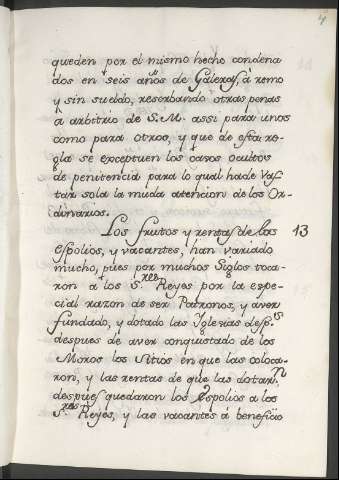 4
queden por el mismo hecho condena
dos en seis años de Galeras, á remo
y sin sueldo, reserbando otras penas
a arbitrio de S.M. assi para unos
como para otros, y que de esta re-
gla se exceptuen los casos ocultos
de penitencia para lo qual hade vas
tar sola la muda atencion de los Or-
dinarios.
Los frutos y rentas de las 13
espolios, y vacantes, han variado
mucho, pues por muchos Siglos toca-
ron a los S.res Reyes por la espe-
cial razon de ser Patronos, y aver
fundado, y dotado las Yglesias desp.s
despues de aver conquistado de los
Moros los Sitios en que las coloca-
ron, y las rentas de que las dotaron
despues quedaron los Espolios a los
S.res Reyes, y las vacantes á beneficio